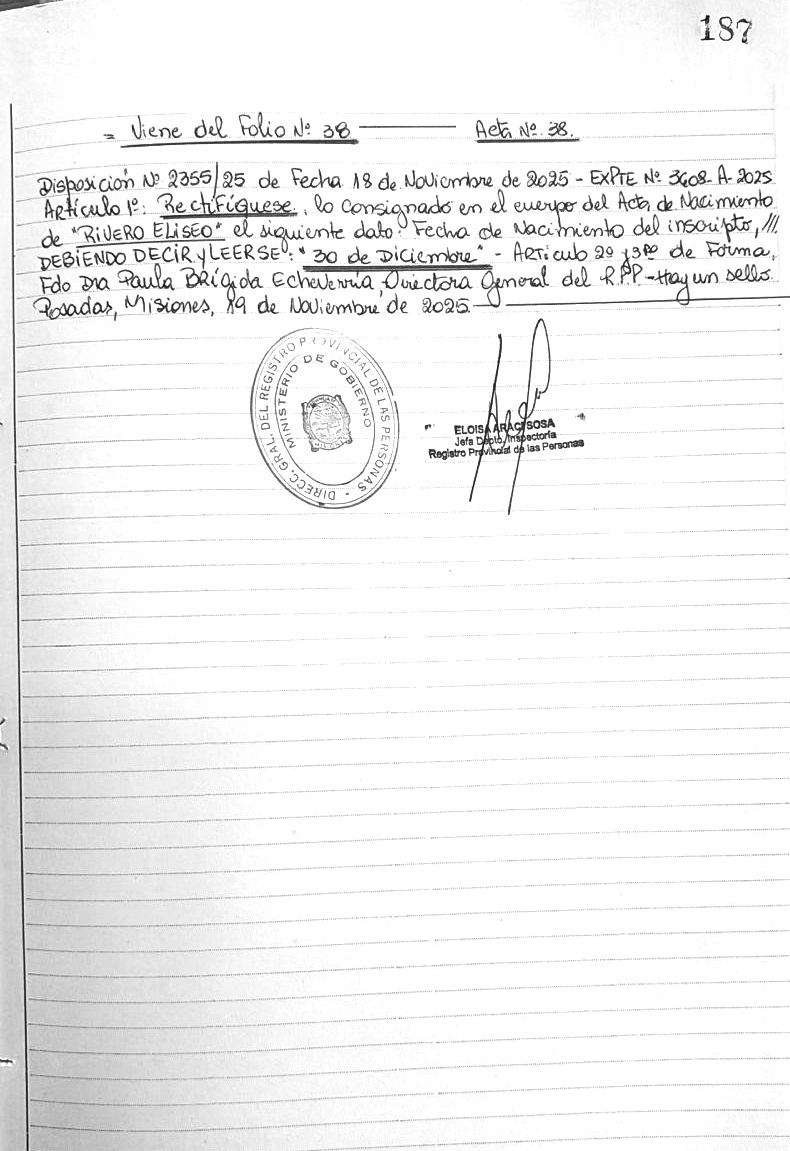 187
= Viene del Folio Nº 38 ——— Acta Nº 38.
Disposición Nº 2355/25 de Fecha 18 de Noviembre de 2025 - EXPTE Nº 3608-A-2025
Artículo 1º: Rectifíquese, lo consignado en el cuerpo del Acta de Nacimiento
de "RIVERO ELISEO" el siguiente dato: Fecha de Nacimiento del inscripto, ///
DEBIENDO DECIR y LEERSE: "30 de Diciembre" - Artículo 2º y 3ro de Forma.
Fdo Dra Paula Brígida Echeverría, Directora General del R.P.P - Hay un sello.
Posadas, Misiones, 19 de Noviembre de 2025.
DIRECC. GRAL. DEL REGISTRO PROVINCIAL DE LAS PERSONAS -
MINISTERIO DE GOBIERNO
ELOISA ARACI SOSA
Jefa Dpto. Inspectoría
Registro Provincial de las Personas